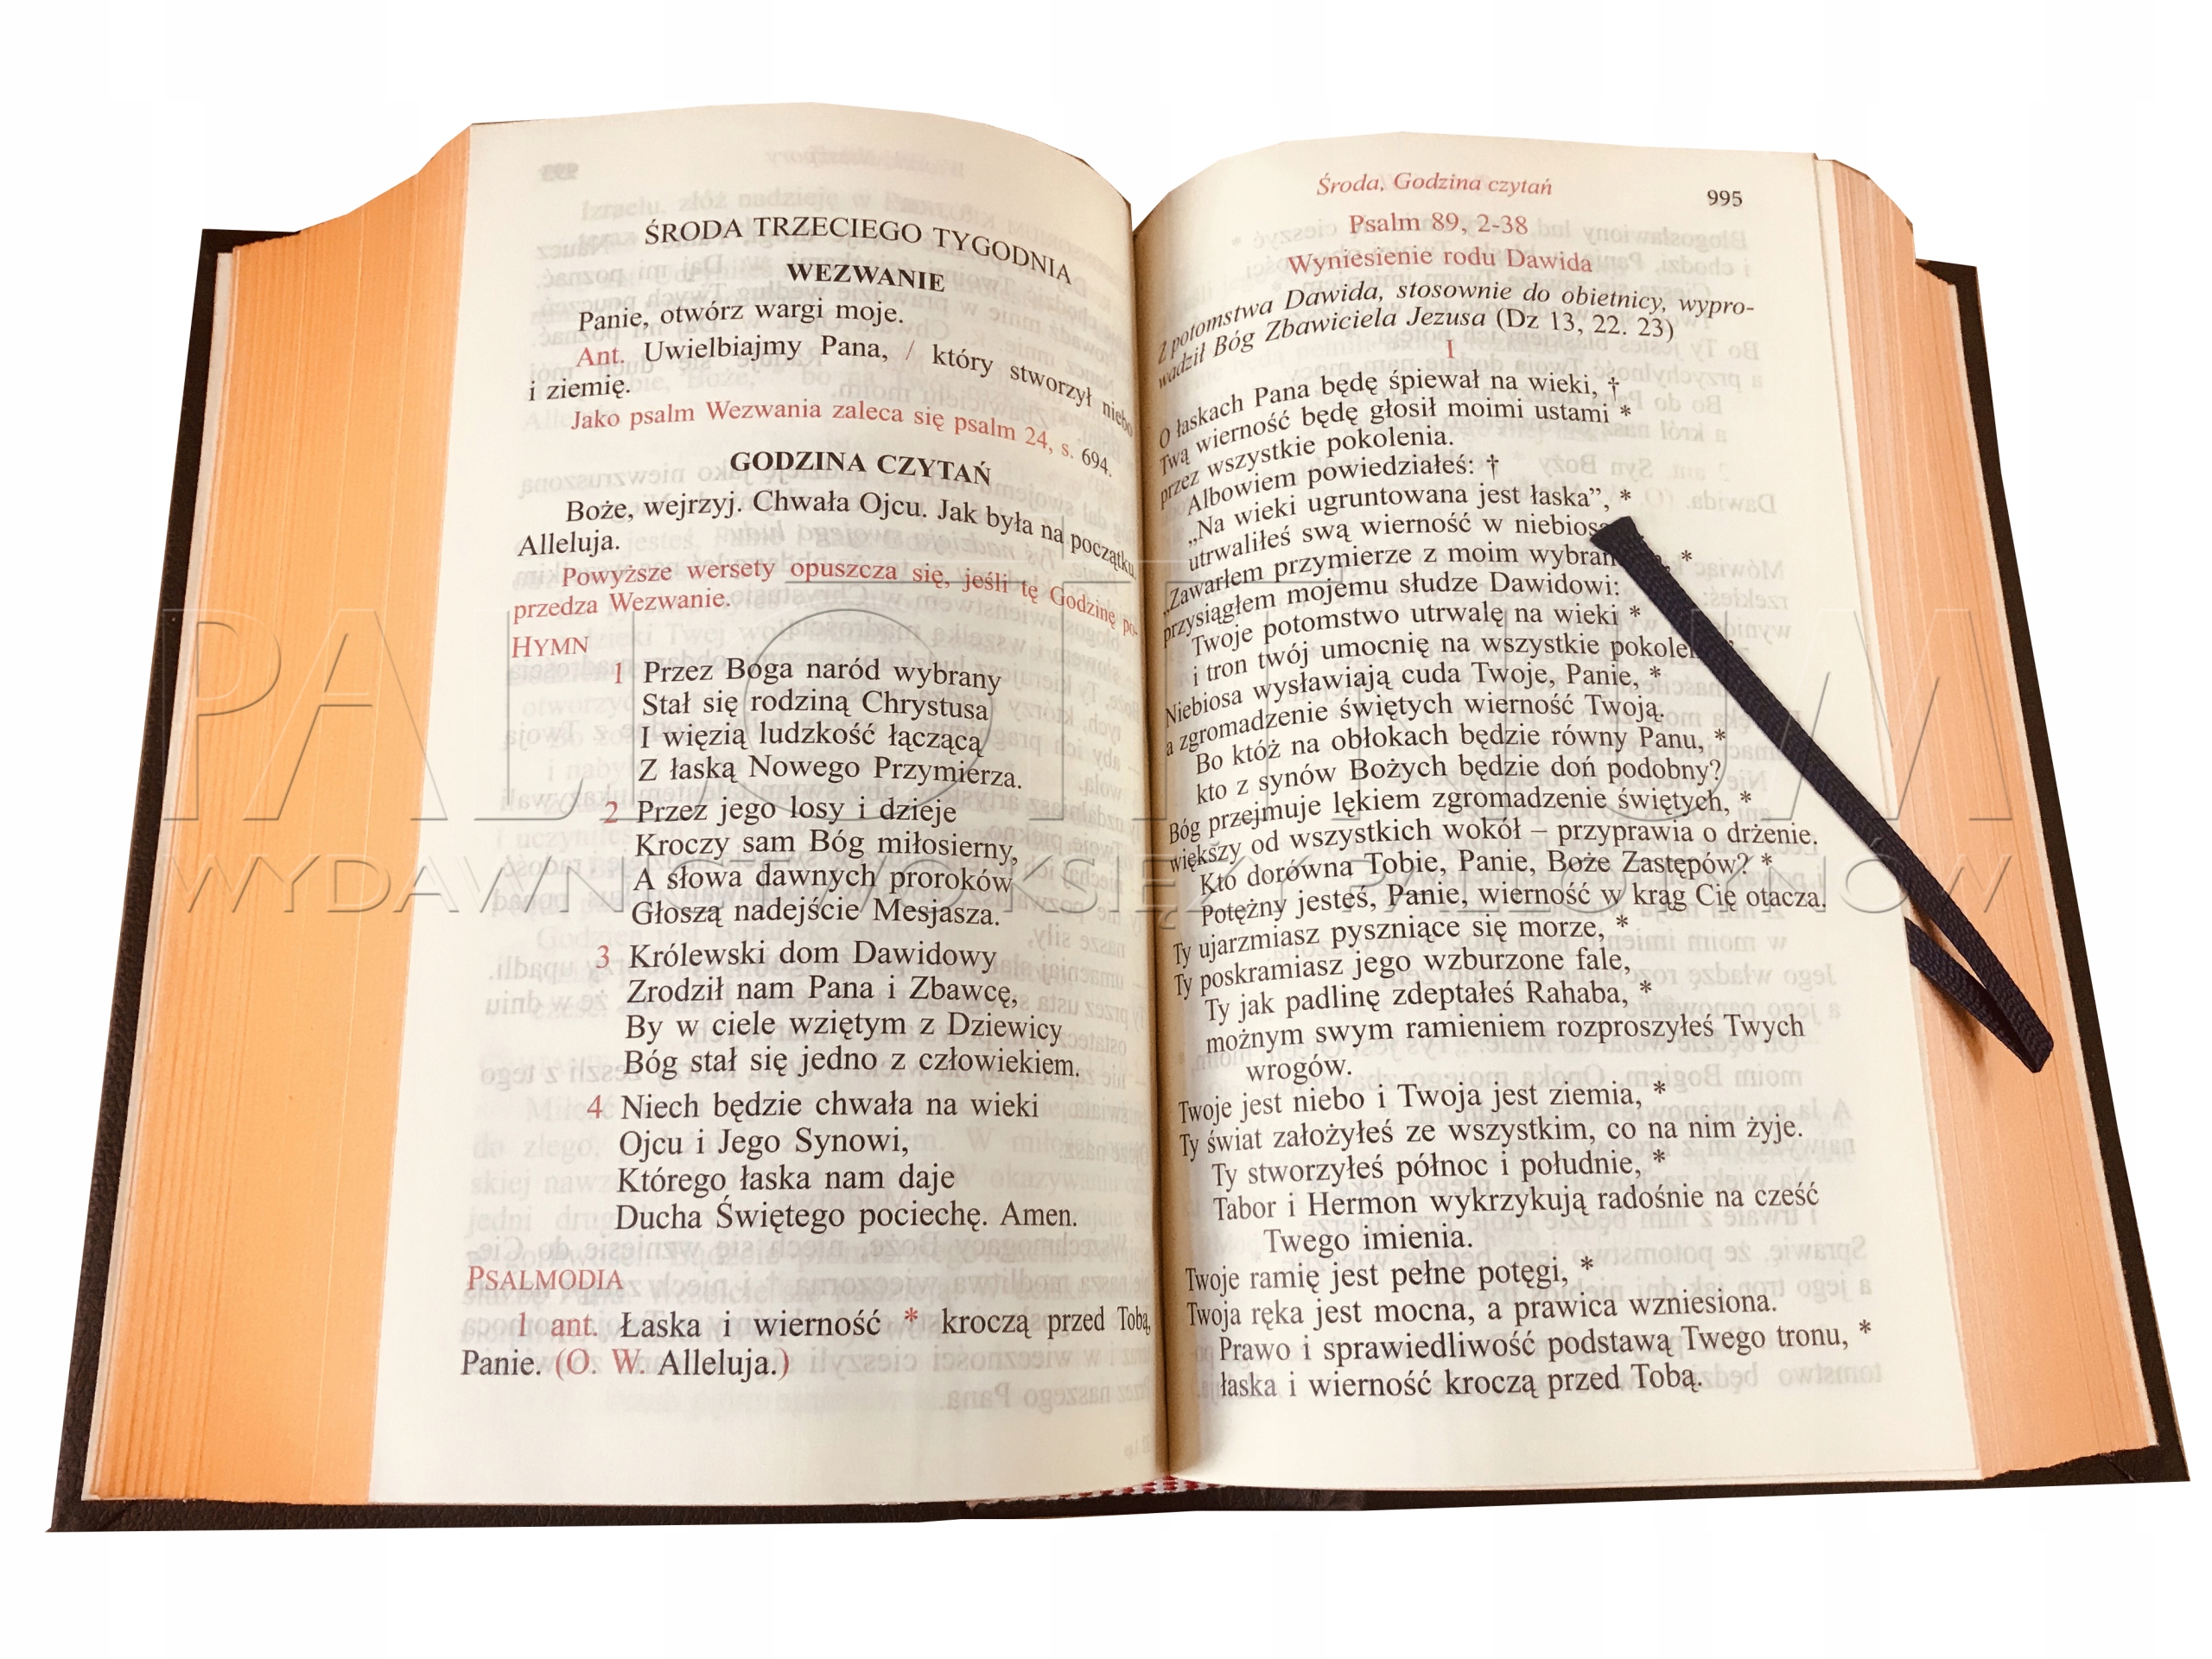 ŚRODA TRZECIEGO TYGODNIA
WEZWANIE
Panie, otwórz wargi moje.
Ant. Uwielbiajmy Pana, / który stworzył niebo
i ziemię.
Jako psalm Wezwania zaleca się psalm 24, s. 694.
GODZINA CZYTAŃ
Boże, wejrzyj. Chwała Ojcu. Jak była na początku.
Alleluja.
Powyższe wersety opuszcza się, jeśli tę Godzinę po-
przedza Wezwanie.
HYMN
1 Przez Boga naród wybrany
Stał się rodziną Chrystusa
I więzią ludzkość łączącą
Z łaską Nowego Przymierza.
2 Przez jego losy i dzieje
Kroczy sam Bóg miłosierny,
A słowa dawnych proroków
Głoszą nadejście Mesjasza.
3 Królewski dom Dawidowy
Zrodził nam Pana i Zbawcę,
By w ciele wziętym z Dziewicy
Bóg stał się jedno z człowiekiem.
4 Niech będzie chwała na wieki
Ojcu i Jego Synowi,
Którego łaska nam daje
Ducha Świętego pociechę. Amen.
PSALMODIA
1 ant. Łaska i wierność * kroczą przed Tobą,
Panie. (O. W. Alleluja.)
Środa, Godzina czytań 995
Psalm 89, 2-38
Wyniesienie rodu Dawida
Z potomstwa Dawida, stosownie do obietnicy, wypro-
wadził Bóg Zbawiciela Jezusa (Dz 13, 22. 23)
I
O łaskach Pana będę śpiewał na wieki, †
Twą wierność będę głosił moimi ustami *
przez wszystkie pokolenia.
Albowiem powiedziałeś: †
„Na wieki ugruntowana jest łaska”, *
utrwaliłeś swą wierność w
„Zawarłem przymierze z moim *
przysiągłem mojemu słudze Dawidowi:
Twoje potomstwo utrwalę na wieki *
i tron twój umocnię na wszystkie
Niebiosa wysławiają cuda Twoje, Panie, *
a zgromadzenie świętych wierność Twoją.
Bo któż na obłokach będzie równy Panu, *
kto z synów Bożych będzie doń podobny?
Bóg przejmuje lękiem zgromadzenie świętych, *
większy od wszystkich wokół – przyprawia o drżenie.
Kto dorówna Tobie, Panie, Boże Zastępów? *
Potężny jesteś, Panie, wierność w krąg Cię otacza.
Ty ujarzmiasz pyszniące się morze, *
Ty poskramiasz jego wzburzone fale,
Ty jak padlinę zdeptałeś Rahaba, *
możnym swym ramieniem rozproszyłeś Twych
wrogów.
Twoje jest niebo i Twoja jest ziemia, *
Ty świat założyłeś ze wszystkim, co na nim żyje.
Ty stworzyłeś północ i południe, *
Tabor i Hermon wykrzykują radośnie na cześć
Twego imienia.
Twoje ramię jest pełne potęgi, *
Twoja ręka jest mocna, a prawica wzniesiona.
Prawo i sprawiedliwość podstawą Twego tronu, *
łaska i wierność kroczą przed Tobą.
PALLOTTINUM
WYDAWNICTWO KSIĘŻY PALLOTYNÓW